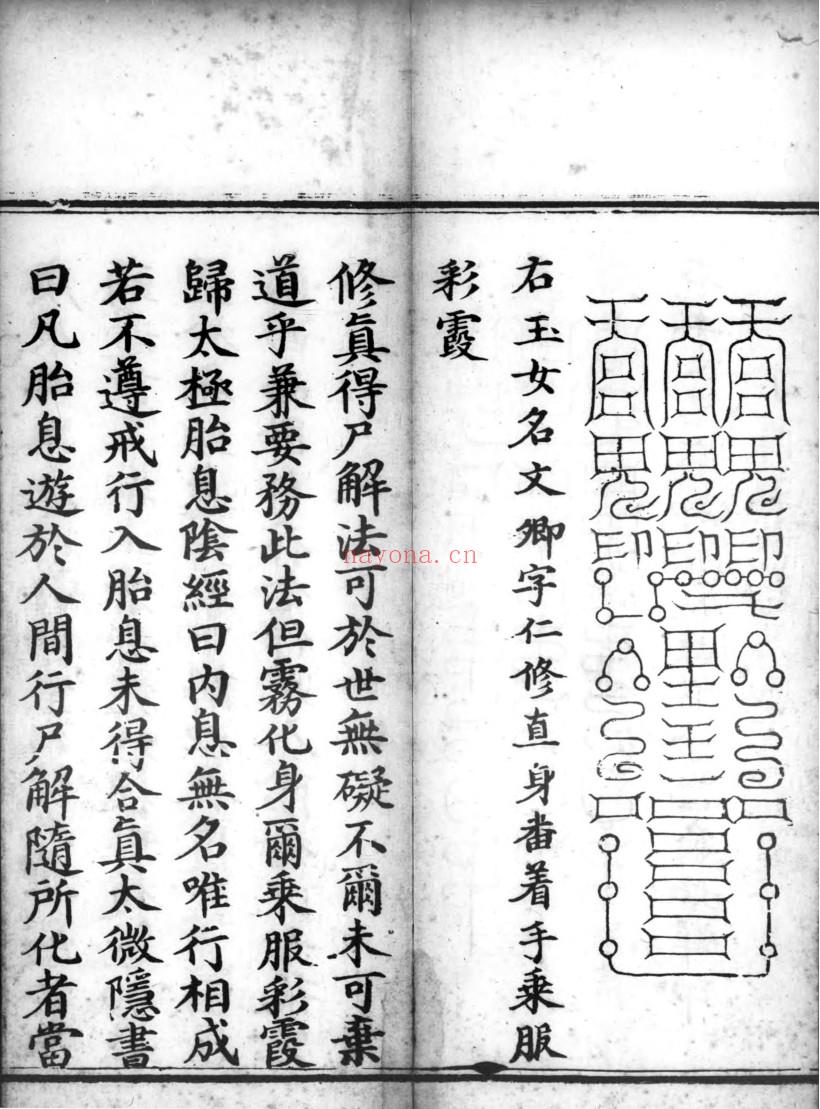 右玉女名文卿字仁修直身畨着手乘服
彩霞
修眞得尸解法可於世無礙不爾未可棄
道乎兼要務此法但霧化身爾乘服彩霞
歸太極胎息陰經曰内息無名唯行相成
若不遵戒行入胎息未得合眞太微隱書
曰凡胎息遊於人間行尸解隨所化者當
nayona.cn